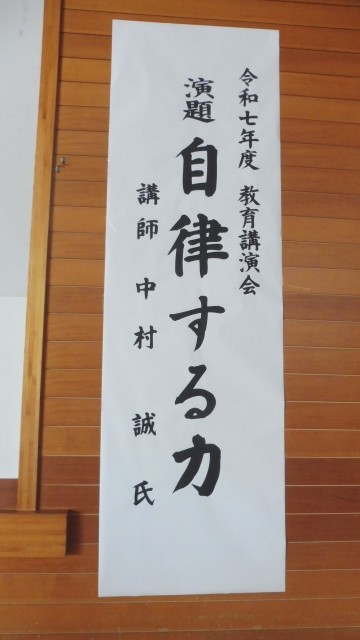 令和七年度 教育講演会
演題 自律する力
講師 中村 誠 氏